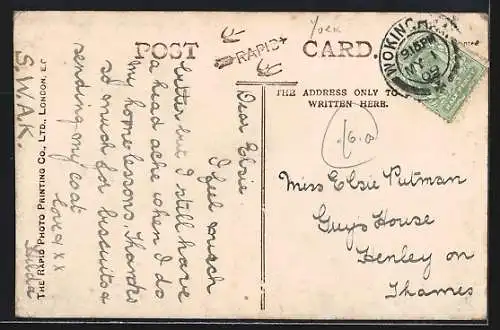 York
POST CARD.
RAPID
WOKINGHAM
915PM
MY
09
THE ADDRESS ONLY TO
WRITTEN HERE.
Dear Elsie
I feel much
better but I still have
a head ache when I do
my home lessons. Thanks
so much for biscuits &
sending my coat
love & x x
Hilda
S.W.A.K.
THE RAPID PHOTO PRINTING CO., LTD., LONDON, E.C.
Miss Elsie Putman
Guy's House
Henley on
Thames